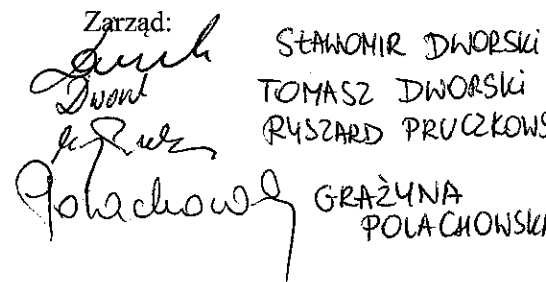 Zarząd:
SŁAWOMIR DWORSKI
Dwors
TOMASZ DWORSKI
RYSZARD PRUCZKOWS
Polachows
GRAŻYNA
POLACHOWSKA